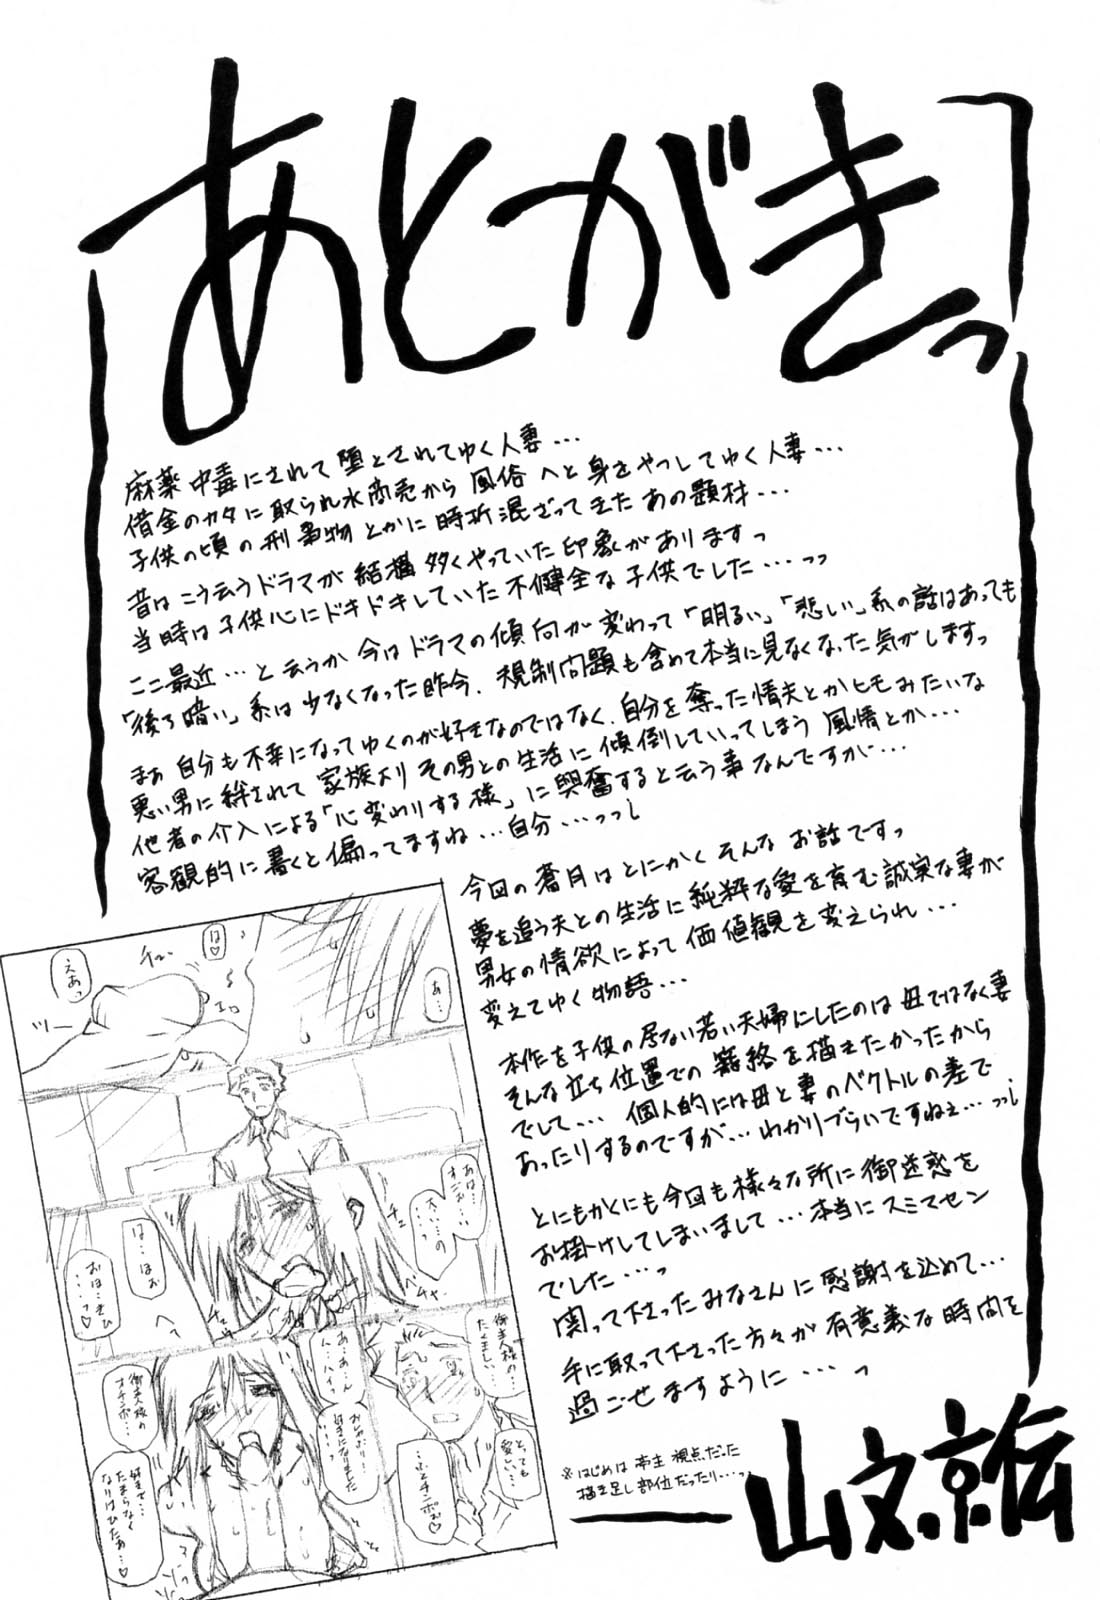 あとがきっ
麻薬中毒にされて堕とされてゆく人妻・・・
借金のカタに取られ水商売から風俗へと身をやつしてゆく人妻・・・
子供の頃の刑事物とかに時折混ざってきたあの題材・・・
昔はこう云うドラマが結構多くやっていた印象がありますっ
当時は子供心にドキドキしていた不健全な子供でした・・・っっ
ここ最近・・・と云うか今はドラマの傾向が変わって「明るい」「悲しい」系の話はあっても
「後ろ暗い」系は少なくなった昨今、規制問題も含めて本当に見なくなった気がしますっ
まぁ自分も不幸になってゆくのが好きなのではなく、自分を奪った情夫とかヒモみたいな
悪い男に絆されて家族よりその男との生活に傾倒していってしまう風情とか・・・
他者の介入による「心変わりする様」に興奮すると云う事なんですが・・・
客観的に書くと偏ってますね・・・自分・・・っっ
今回の蒼月はとにかくそんなお話ですっ
夢を追う夫との生活に純粋な愛を育む誠実な妻が
男女の情欲によって価値観を変えられ・・・
変えてゆく物語・・・
本作を子供の居ない若い夫婦にしたのは母ではなく妻
そんな立ち位置での籠絡を描えたかったから
でして・・・個人的には母と妻のベクトルの差で
あったりするのですが・・・わかりづらいですねぇ・・・っっ
とにもかくにも今回も様々な所に御迷惑を
お掛けしてしまいまして・・・本当にスミマセン
でした・・・っ
関って下さったみなさんに感謝を込めて・・・
手に取って下さった方々が有意義な時間を
過ごせますように・・・っ
※はじめは亭主視点だった
描き足し部位だったり・・・っ
山文京伝